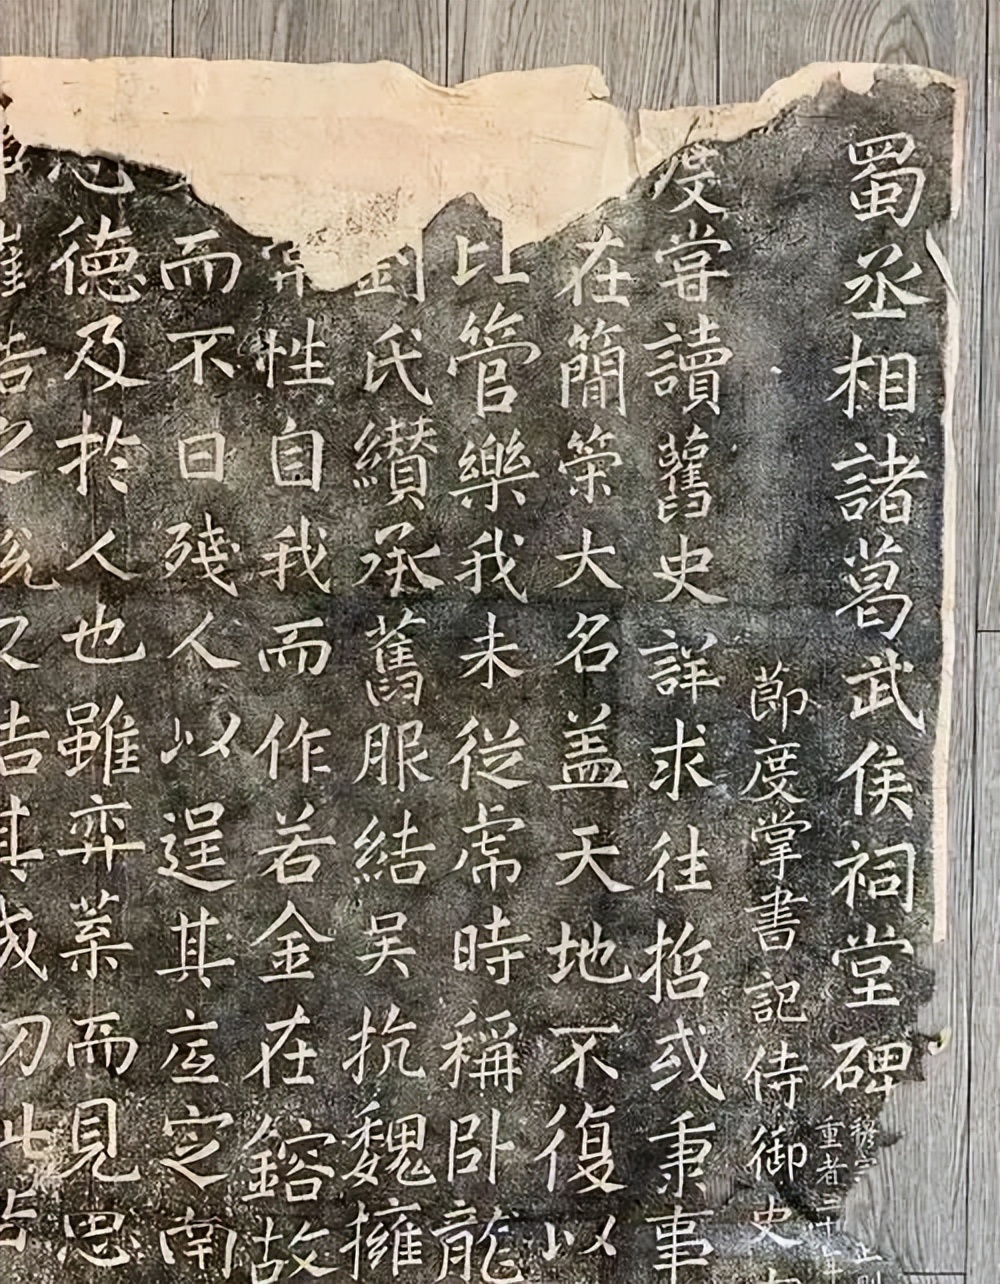 蜀丞相諸葛武侯祠堂碑
重者三十
節度掌書記侍御史
度嘗讀舊史詳求往哲或秉事
在簡策大名盖天地不復以
比管樂我未從虙時稱卧龍
劉氏纘承舊服結吴抗魏擁
性自我而作若金在鎔故
而不曰殘人以逞其㡳定南
怨德及於人也雖弈葉而見思
崔浩之説又詰其成功此皆